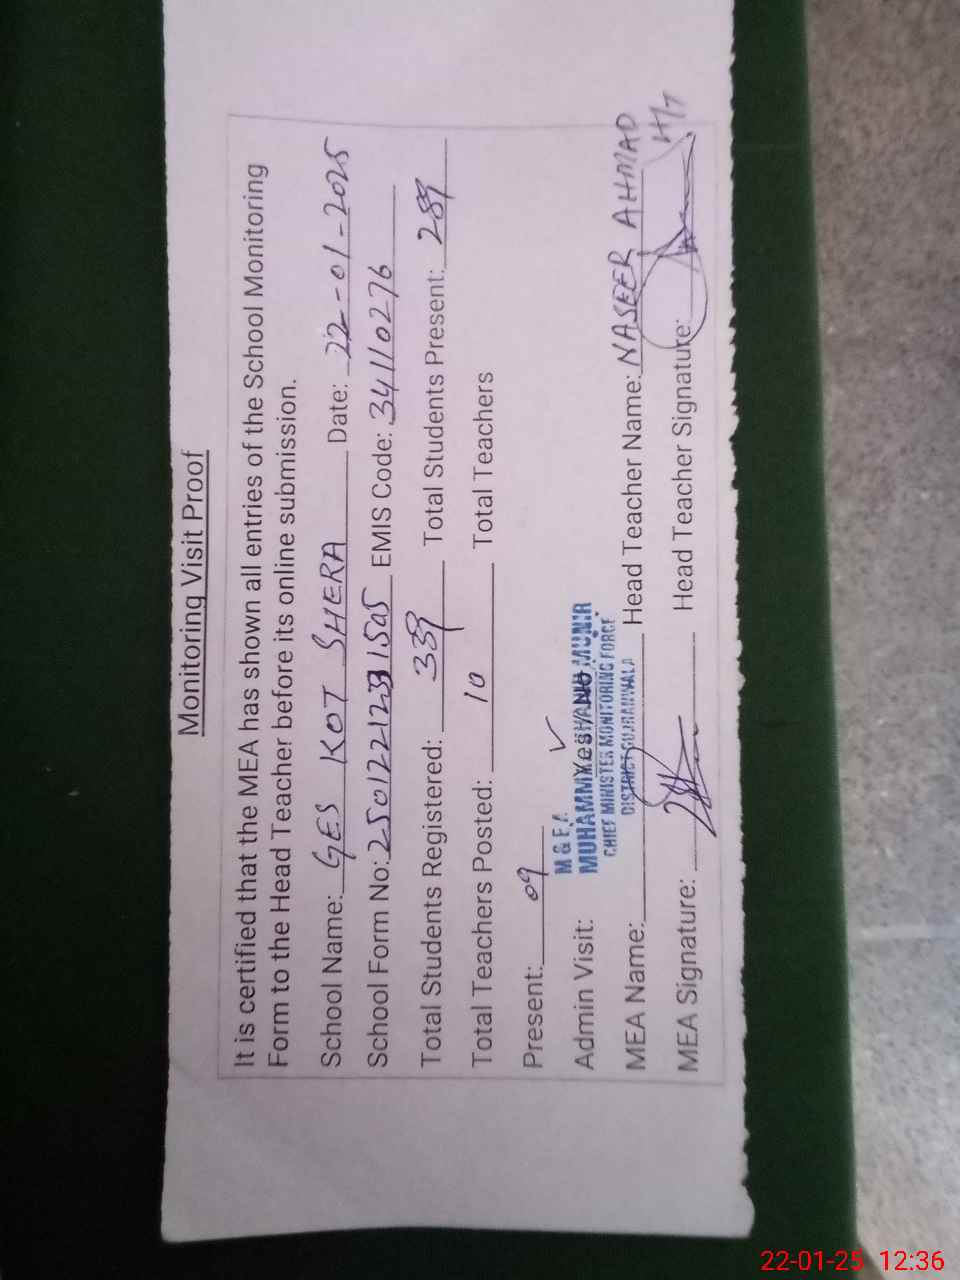 Monitoring Visit Proof
It is certified that the MEA has shown all entries of the School Monitoring
Form to the Head Teacher before its online submission.
School Name: GES KOT SHERA Date: 22-01-2025
School Form No: 2501221231505 EMIS Code: 34110276
Total Students Registered: 339 Total Students Present: 289
Total Teachers Posted: 10 Total Teachers
Present: 09
M & E A
Admin Visit: Yes / No ✓
MUHAMMAD MUNIR
CHIEF MINISTER MONITORING FORCE
DISTRICT GUJRANWALA
MEA Name: Head Teacher Name: NASEER AHMAD
MEA Signature: Head Teacher Signature: H/T
22-01-25 12:36